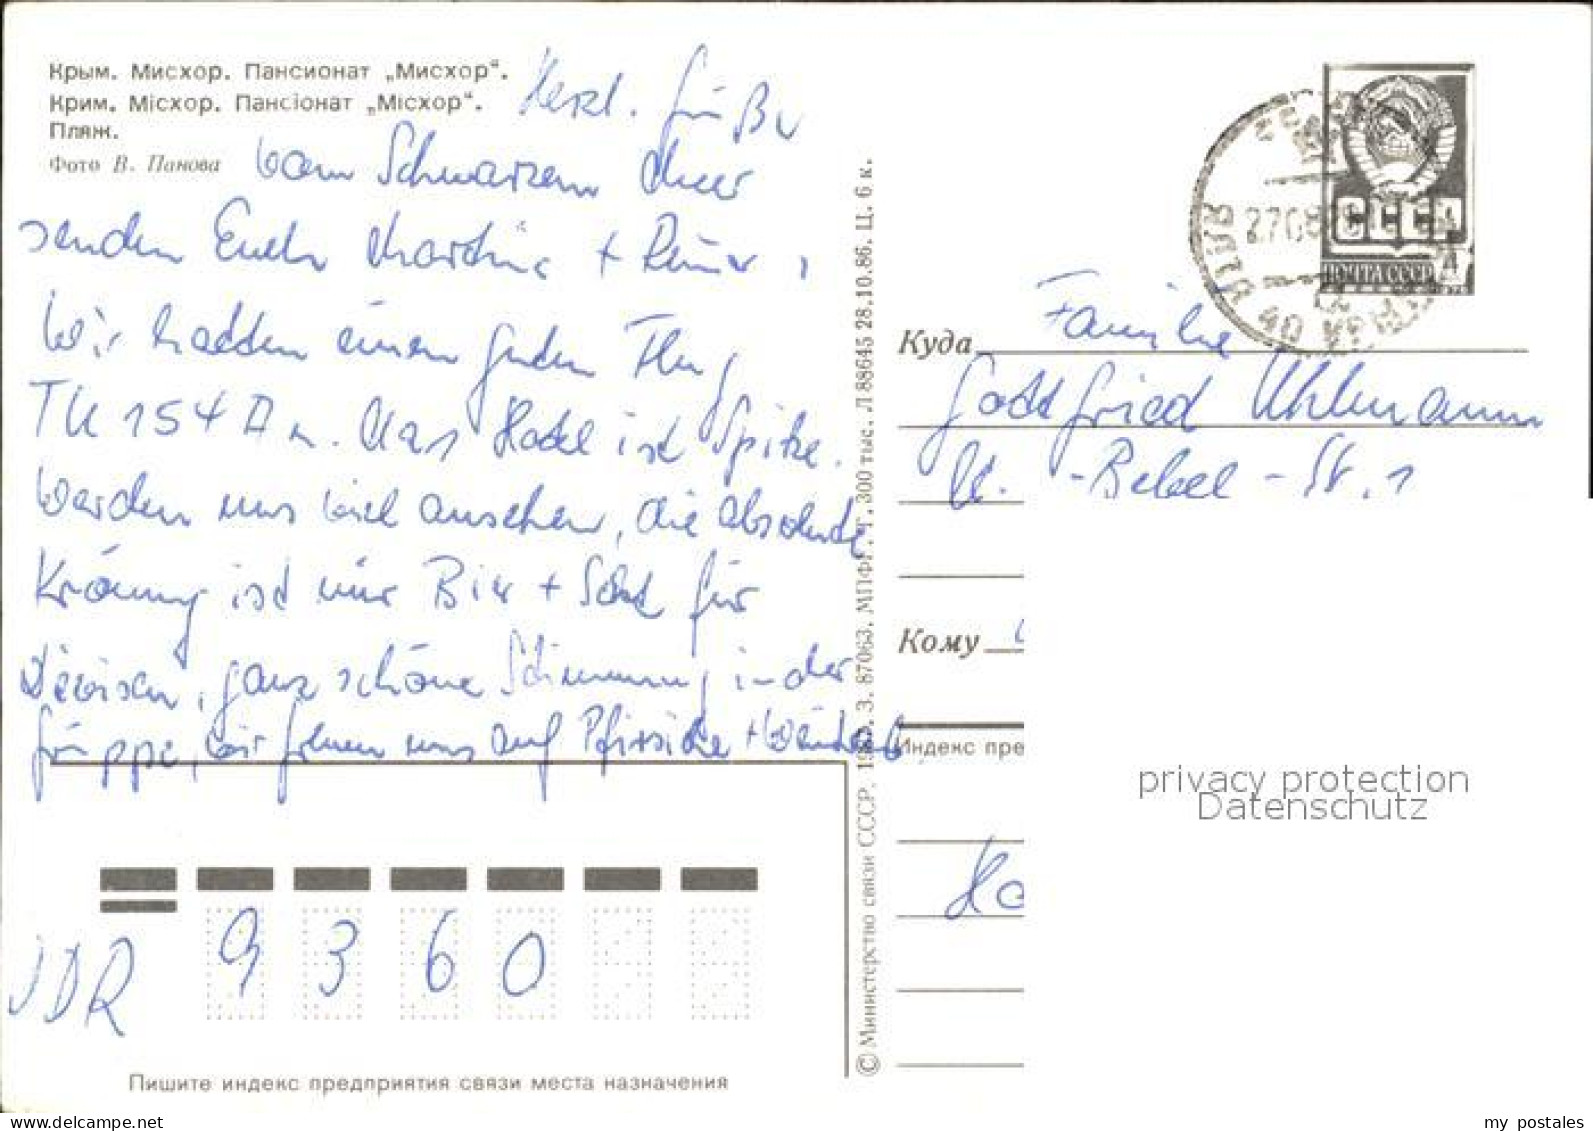 Крым. Мисхор. Пансионат „Мисхор“.
Крим. Місхор. Пансіонат „Місхор“.
Пляж.
Фото В. Панова
Herzl. Grüße
vom Schwarzen Meer
senden Euch Martina + Rainer,
Wir hatten einen guten Flug
TU 154 A m. Uns Hotel ist Spitze.
Werden uns viel ansehen, die absolute
Krönung ist nur Bier + Sekt für
Devisen, ganz schöne Stimmung in der
Gruppe, wir freuen uns auf Pfirsiche + Weintraub
DDR 9360
Пишите индекс предприятия связи места назначения
© Министерство связи СССР, 1987. З. 87063. МПФГ. Т. 300 тыс. Л 88645 28.10.86. Ц. 6 к.
СССР
ПОЧТА СССР 4
Куда Familie
Gottfried Uhlmann
A.-Bebel-Str. 1
Кому
Индекс пре
privacy protection
Datenschutz
www.delcampe.net
my_postales